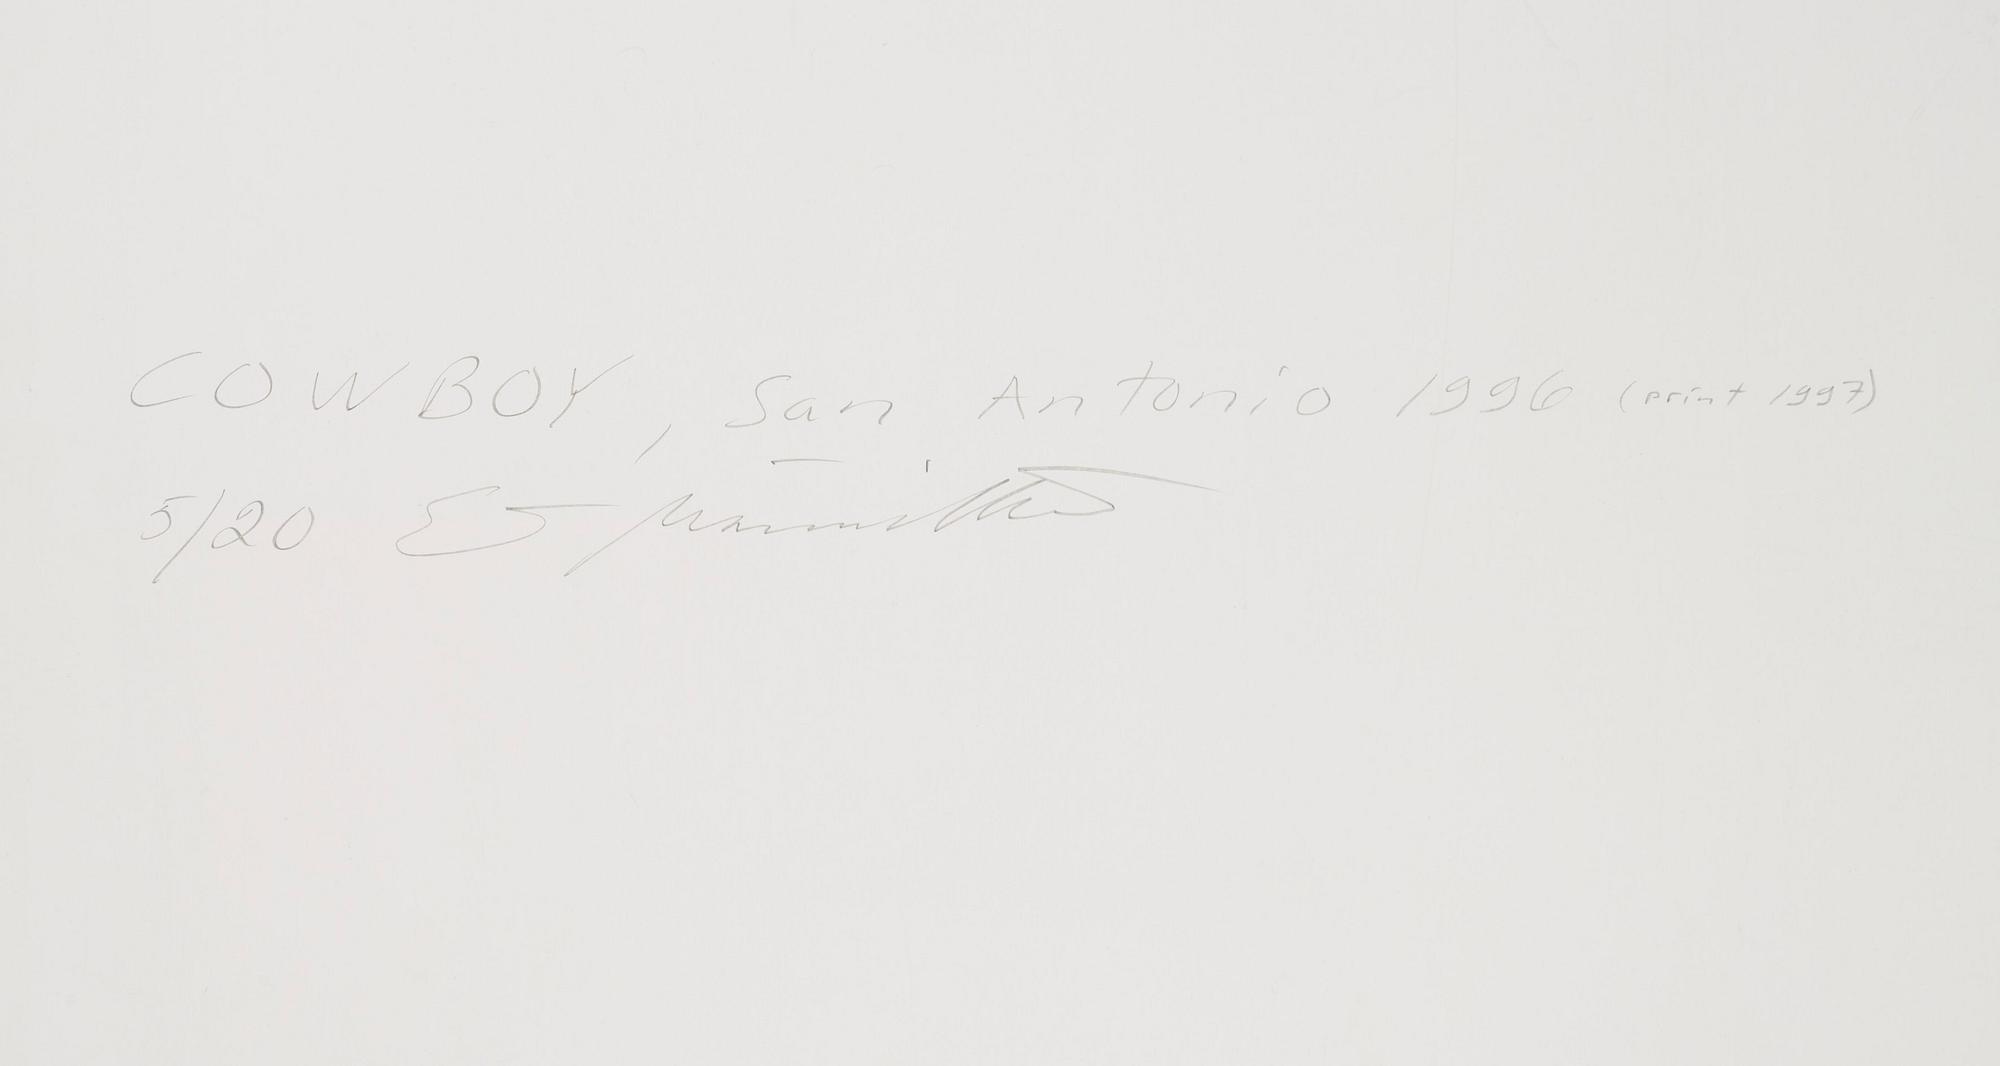 COWBOY, San Antonio 1996 (print 1997)
5/20